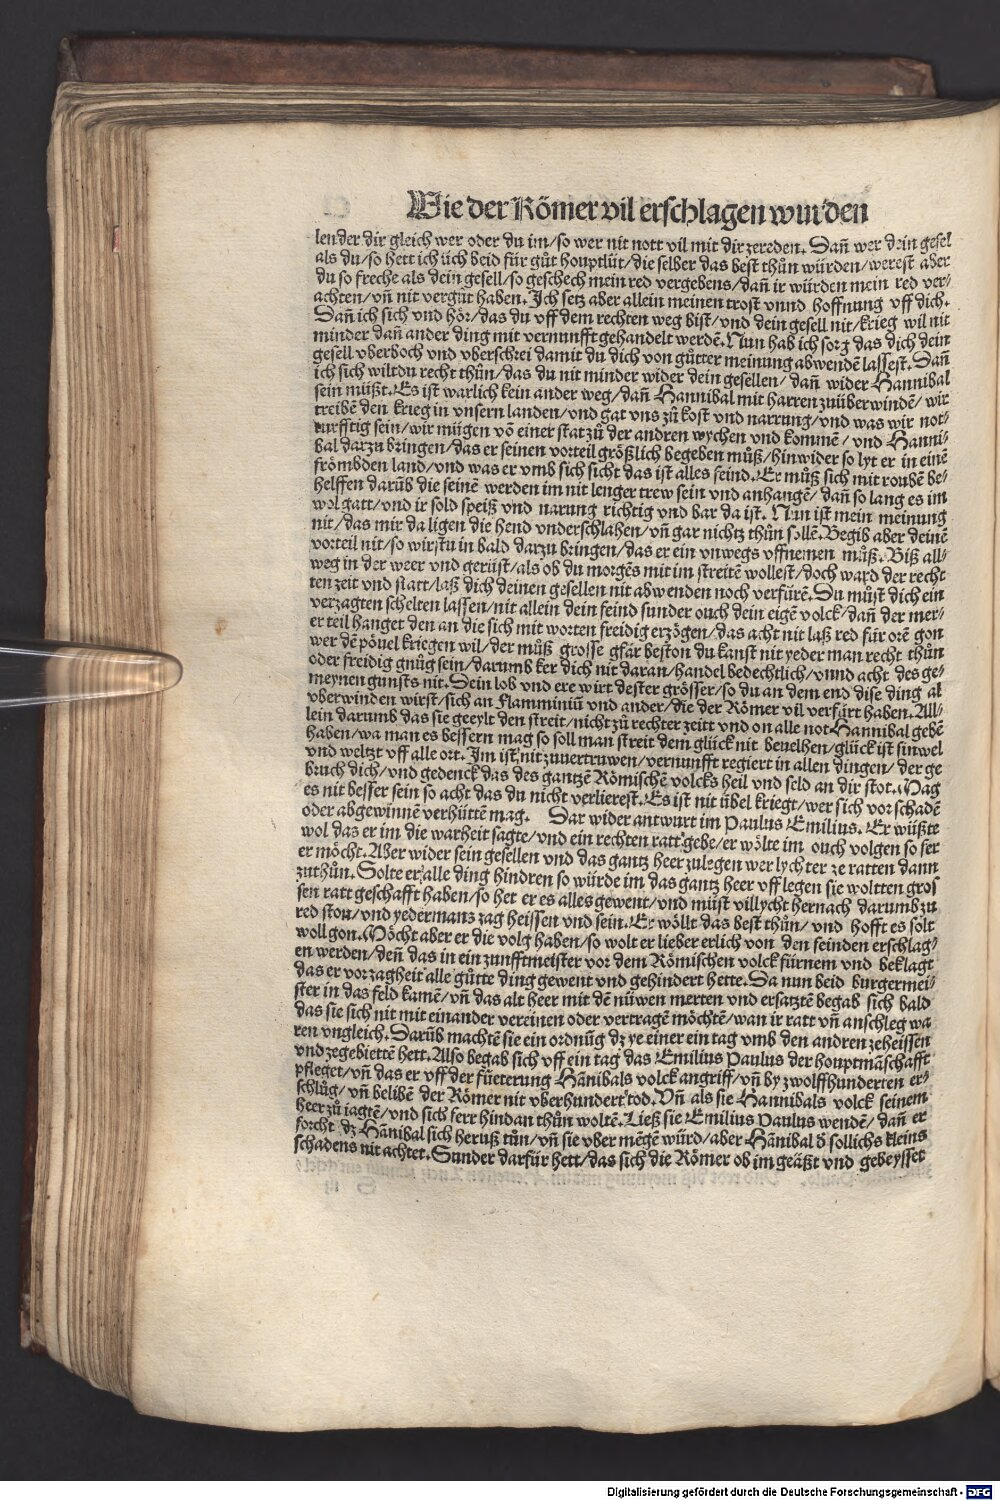 Wie der Römer vil erschlagen wurden
len der dir gleich wer oder du im/so wer nit nott vil mit dir zereden. Dañ wer dein gesel
als du/so hett ich üch beid für gůt houptlüt/die selber das best thůn würden/werest aber
du so freche als dein gesell/so geschech mein red vergebens/dañ ir würden mein red ver⸗
achten/vñ nit vergůt haben. Jch setz aber allein meinen trost vnnd hoffnung vff dich.
Dañ ich sich vnd hör/das du vff dem rechten weg bist/vnd dein gesell nit/krieg wil nit
minder dañ ander ding mit vernunfft gehandelt werdē. Nun hab ich sorg das dich dein
gesell vberboch vnd vberschrei damit du dich von gůtter meinung abwendē lassest. Dañ
ich sich wiltdu recht thůn/das du nit minder wider dein gesellen/dañ wider Hannibal
sein müßt. Es ist warlich kein ander weg/dañ Hannibal mit harren zuüberwindē/wir
treibē den krieg in vnsern landen/vnd gat vns zů kost vnd narrung/vnd was wir not⸗
turfftig sein/wir mügen vō einer stat zů der andren wychen vnd kommē/vnd Hanni⸗
bal darzu bringen/das er seinen vorteil größlich begeben můß/hinwider so lyt er in einē
frömbden land/vnd was er vmb sich sicht das ist alles feind. Er můß sich mit roubē be⸗
helffen darūb die seinē werden im nit lenger trew sein vnd anhangē/dañ so lang es im
wol gatt/vnd ir sold speiß vnd narung richtig vnd bar da ist. Nun ist mein meinung
nit/das mir da ligen die hend vnderschlahen/vñ gar nichtz thůn sollē. Begib aber deinē
vorteil nit/so wirstu in bald darzu bringen/das er ein vnwegs vffnemen můß. Biß all⸗
weg in der weer vnd gerüst/als ob du morgēs mit im streitē wollest/doch ward der recht
ten zeit vnd statt/laß dich deinen gesellen nit abwenden noch verfürē. Du můst dich ein
verzagten schelten lassen/nit allein dein feind sunder ouch dein eigē volck/dañ der mer⸗
er teil hanget den an die sich mit worten freidig erzögen/das acht nit laß red für orē gon
wer dē pövel kriegen wil/der můß grosse gfar beston du kanst nit yeder man recht thůn
oder freidig gnůg sein/darumb ker dich nit daran/handel bedechtlich/vnnd acht des ge⸗
meynen gunsts nit. Dein lob vnd ere wirt dester grösser/so du an dem end dise ding al
vberwinden wirst/sich an Flamminiū vnd ander/die der Römer vil verfürt haben. All⸗
lein darumb das sie geeylt den streit/nicht zů rechter zeitt vnd on alle not Hannibal gebē
haben/wa man es bessern mag so soll man streit dem glück nit beuelhen/glück ist sinwel
vnd weltzt vff alle ort. Im ist nit zuuertruwen/vernunfft regiert in allen dingen/der ge
bruch dich/vnd gedenck das des gantzē Römischē volcks heil vnd seld an dir stot. Mag
es nit besser sein so acht das du nicht verlierest. Es ist nit übel kriegt/wer sich vor schadē
oder abgewinnē verhüttē mag. Dar wider antwurt im Paulus Emilius. Er wüßte
wol das er im die warheit sagte/vnd ein rechten ratt gebe/er wölte im ouch volgen so fer
er möcht. Aber wider sein gesellen vnd das gantz heer zulegen wer lychter ze ratten dann
zuthůn. Solte er alle ding hindren so würde im das gantz heer vff legen sie woltten gros
sen ratt geschafft haben/so het er es alles gewent/vnd müst villycht hernach darumb zu
red ston/vnd yedermans zag heissen vnd sein. Er wöllt das best thůn/vnd hofft es solt
woll gon. Möcht aber er die volg haben/so wolt er lieber erlich von den feinden erschlag⸗
en werden/deñ das in ein zunfftmeister vor dem Römischen volck fürnem vnd beklagt
das er vor zagheit alle gůtte ding gewent vnd gehindert hette. Da nun beid burgermei⸗
ster in das feld kamē/vñ das alt heer mit dē nüwen merten vnd ersatztē begab sich bald
das sie sich nit mit einander vereinen oder vertragē möchtē/wan ir ratt vñ anschleg wa
ren vngleich. Darūb machtē sie ein ordnūg dz ye einer ein tag vmb den andren zeheissen
vnd zegebiettē hett. Also begab sich vff ein tag das Emilius Paulus der houptmāschafft
pfleget/vñ das er vff der füeterung Hānibals volck angriff/vñ by zwolffhunderten er⸗
schlůg/vñ belibē der Römer nit vberhundert tod. Vñ als sie Hannibals volck seinem
heer zů iagtē/vnd sich ferr hindan thůn woltē. Ließ sie Emilius Paulus wendē/dañ er
forcht dz Hānibal sich heruß tůn/vñ sie vber mēgē würd/aber Hānibal d̄ sollichs kleins
schadens nit achtet. Sunder darfür hett/das sich die Römer ob im geäßt vnd gebeysset
Digitalisierung gefördert durch die Deutsche Forschungsgemeinschaft - DFG